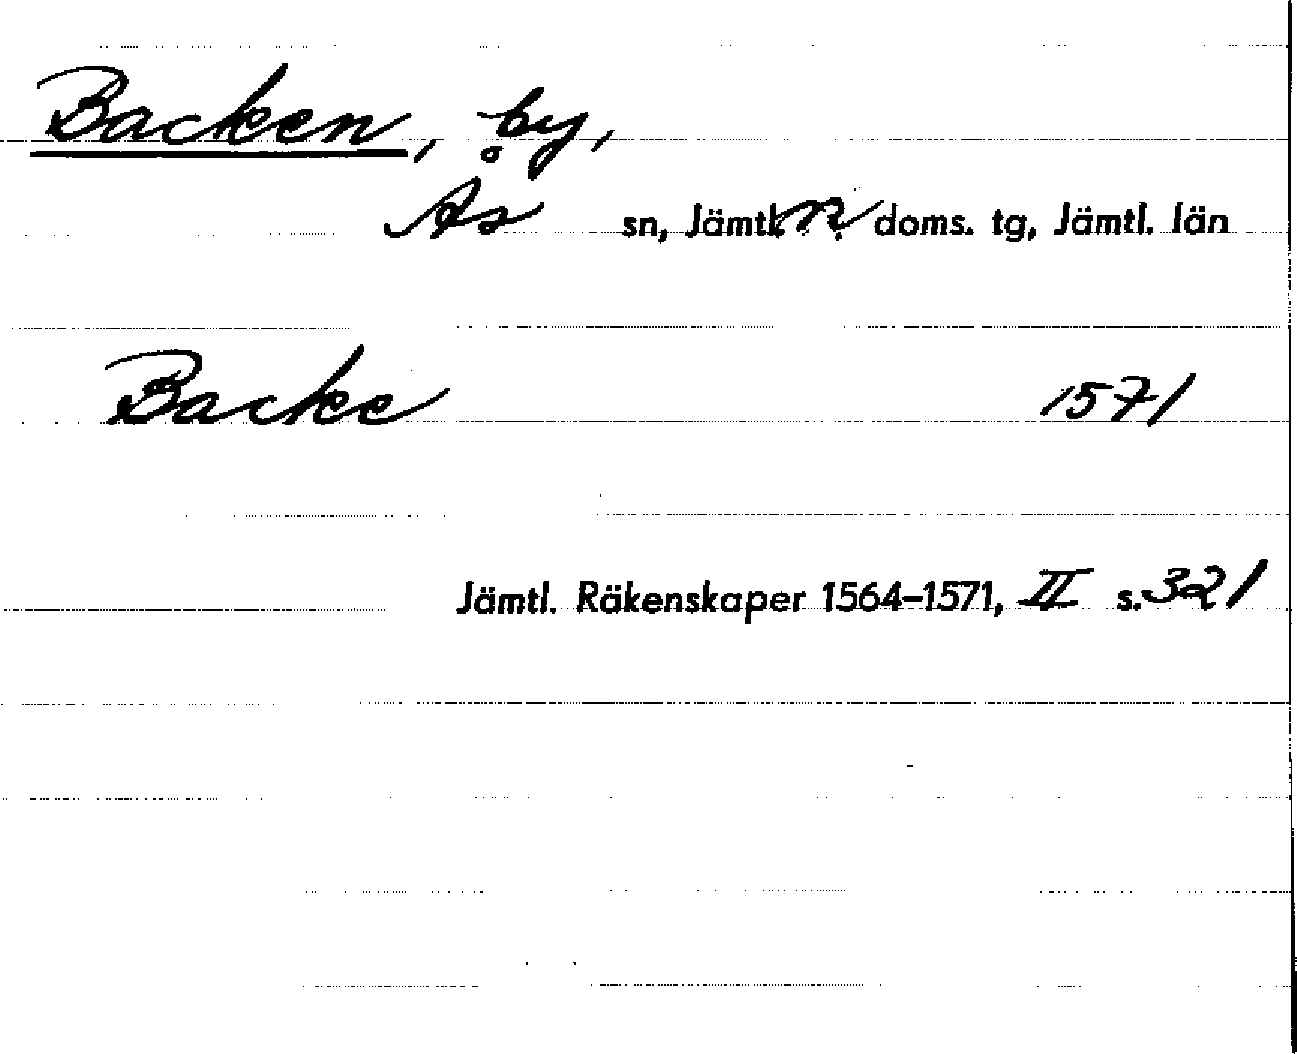 Backen, by,
Ås sn, Jämtl. n. doms. tg, Jämtl. län
Backe 1571
Jämtl. Räkenskaper 1564–1571, II s. 321